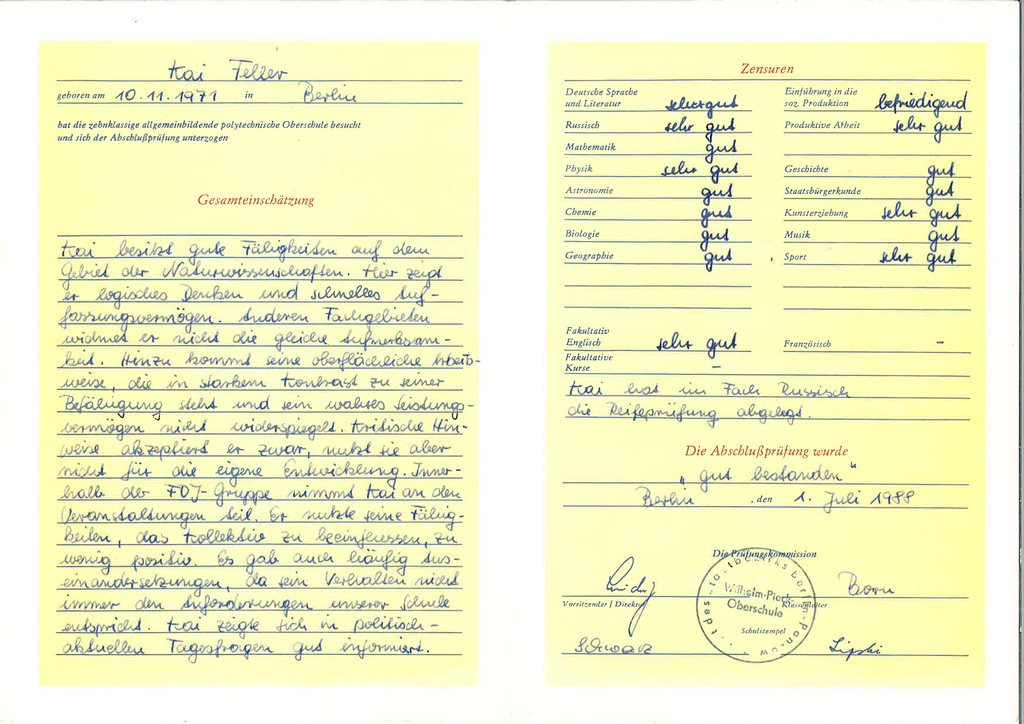 Kai Feller
geboren am 10.11.1971 in Berlin
hat die zehnklassige allgemeinbildende polytechnische Oberschule besucht
und sich der Abschlußprüfung unterzogen
Gesamteinschätzung
Kai besitzt gute Fähigkeiten auf dem
Gebiet der Naturwissenschaften. Hier zeigt
er logisches Denken und schnelles Auf-
fassungsvermögen. Anderen Fachgebieten
widmet er nicht die gleiche Aufmerksam-
keit. Hinzu kommt seine oberflächliche Arbeits-
weise, die in starkem Kontrast zu seiner
Befähigung steht und sein wahres Leistungs-
vermögen nicht widerspiegelt. Kritische Hin-
weise akzeptiert er zwar, nutzt sie aber
nicht für die eigene Entwicklung. Inner-
halb der FDJ-Gruppe nimmt Kai an den
Veranstaltungen teil. Er nutzte seine Fähig-
keiten, das Kollektiv zu beeinflussen, zu
wenig positiv. Es gab auch häufig Aus-
einandersetzungen, da sein Verhalten nicht
immer den Anforderungen unserer Schule
entspricht. Kai zeigte sich in politisch-
aktuellen Tagesfragen gut informiert.
Zensuren
Deutsche Sprache
und Literatur sehr gut
Einführung in die
soz. Produktion befriedigend
Russisch sehr gut
Produktive Arbeit sehr gut
Mathematik gut
Physik sehr gut
Geschichte gut
Astronomie gut
Staatsbürgerkunde gut
Chemie gut
Kunsterziehung sehr gut
Biologie gut
Musik gut
Geographie gut
Sport sehr gut
Fakultativ
Englisch sehr gut
Französisch -
Fakultative
Kurse -
Kai hat im Fach Russisch
die Reifeprüfung abgelegt.
Die Abschlußprüfung wurde
"gut bestanden"
Berlin, den 1. Juli 1988
Die Prüfungskommission
Wilhelm-Pieck-
Oberschule
Born
Vorsitzender / Direktor
Klassenleiter
Schulstempel
Schwarz
Lipski